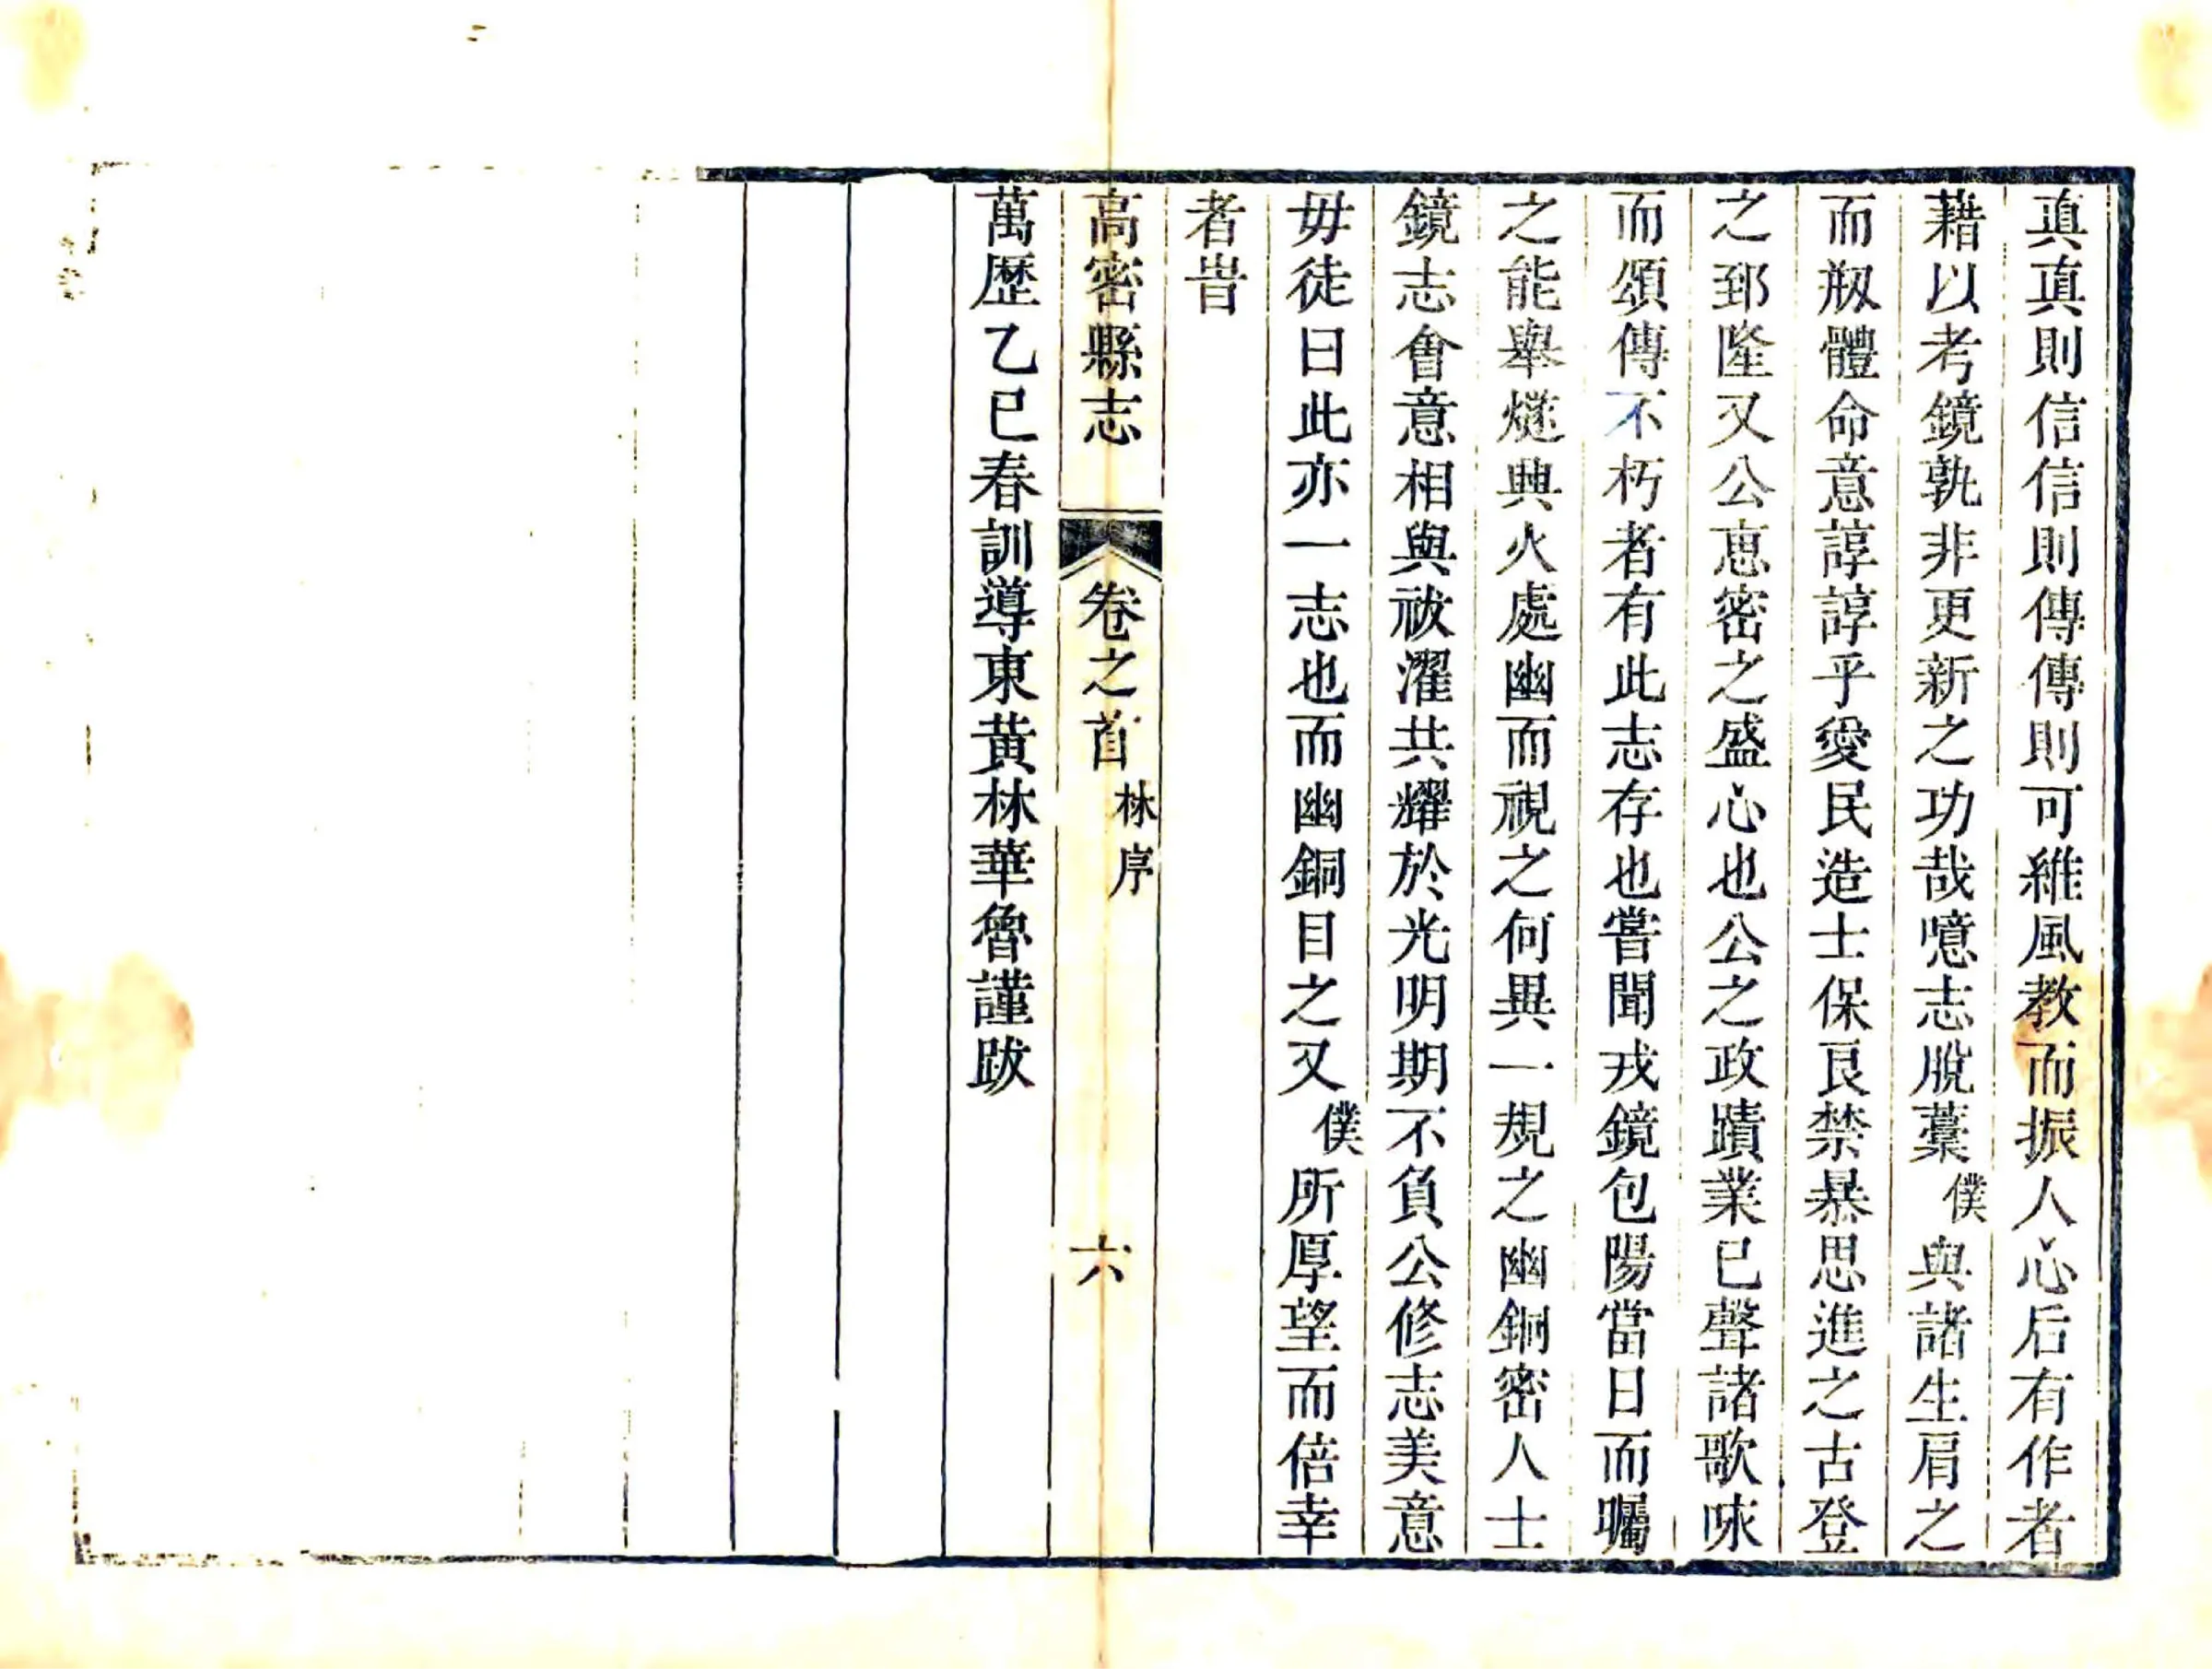 眞眞則信信則傳傳則可維風教而振人心后有作者
藉以考鏡孰非更新之功哉噫志脫藁僕與諸生肩之
而剏體命意諄諄乎愛民造士保良禁暴思進之古登
之郅隆又公恵密之盛心也公之政蹟業已聲諸歌咏
而頌傳不朽者有此志存也嘗聞戎鏡包陽當日而矚
之能舉燧典火處幽而視之何異一規之幽銅密人士
鏡志會意相與祓濯共耀於光明期不負公修志美意
毋徒曰此亦一志也而幽銅目之又僕所厚望而倍幸
者旹
高密縣志 卷之首 林序 六
萬歷乙巳春訓導東黃林華魯謹跋